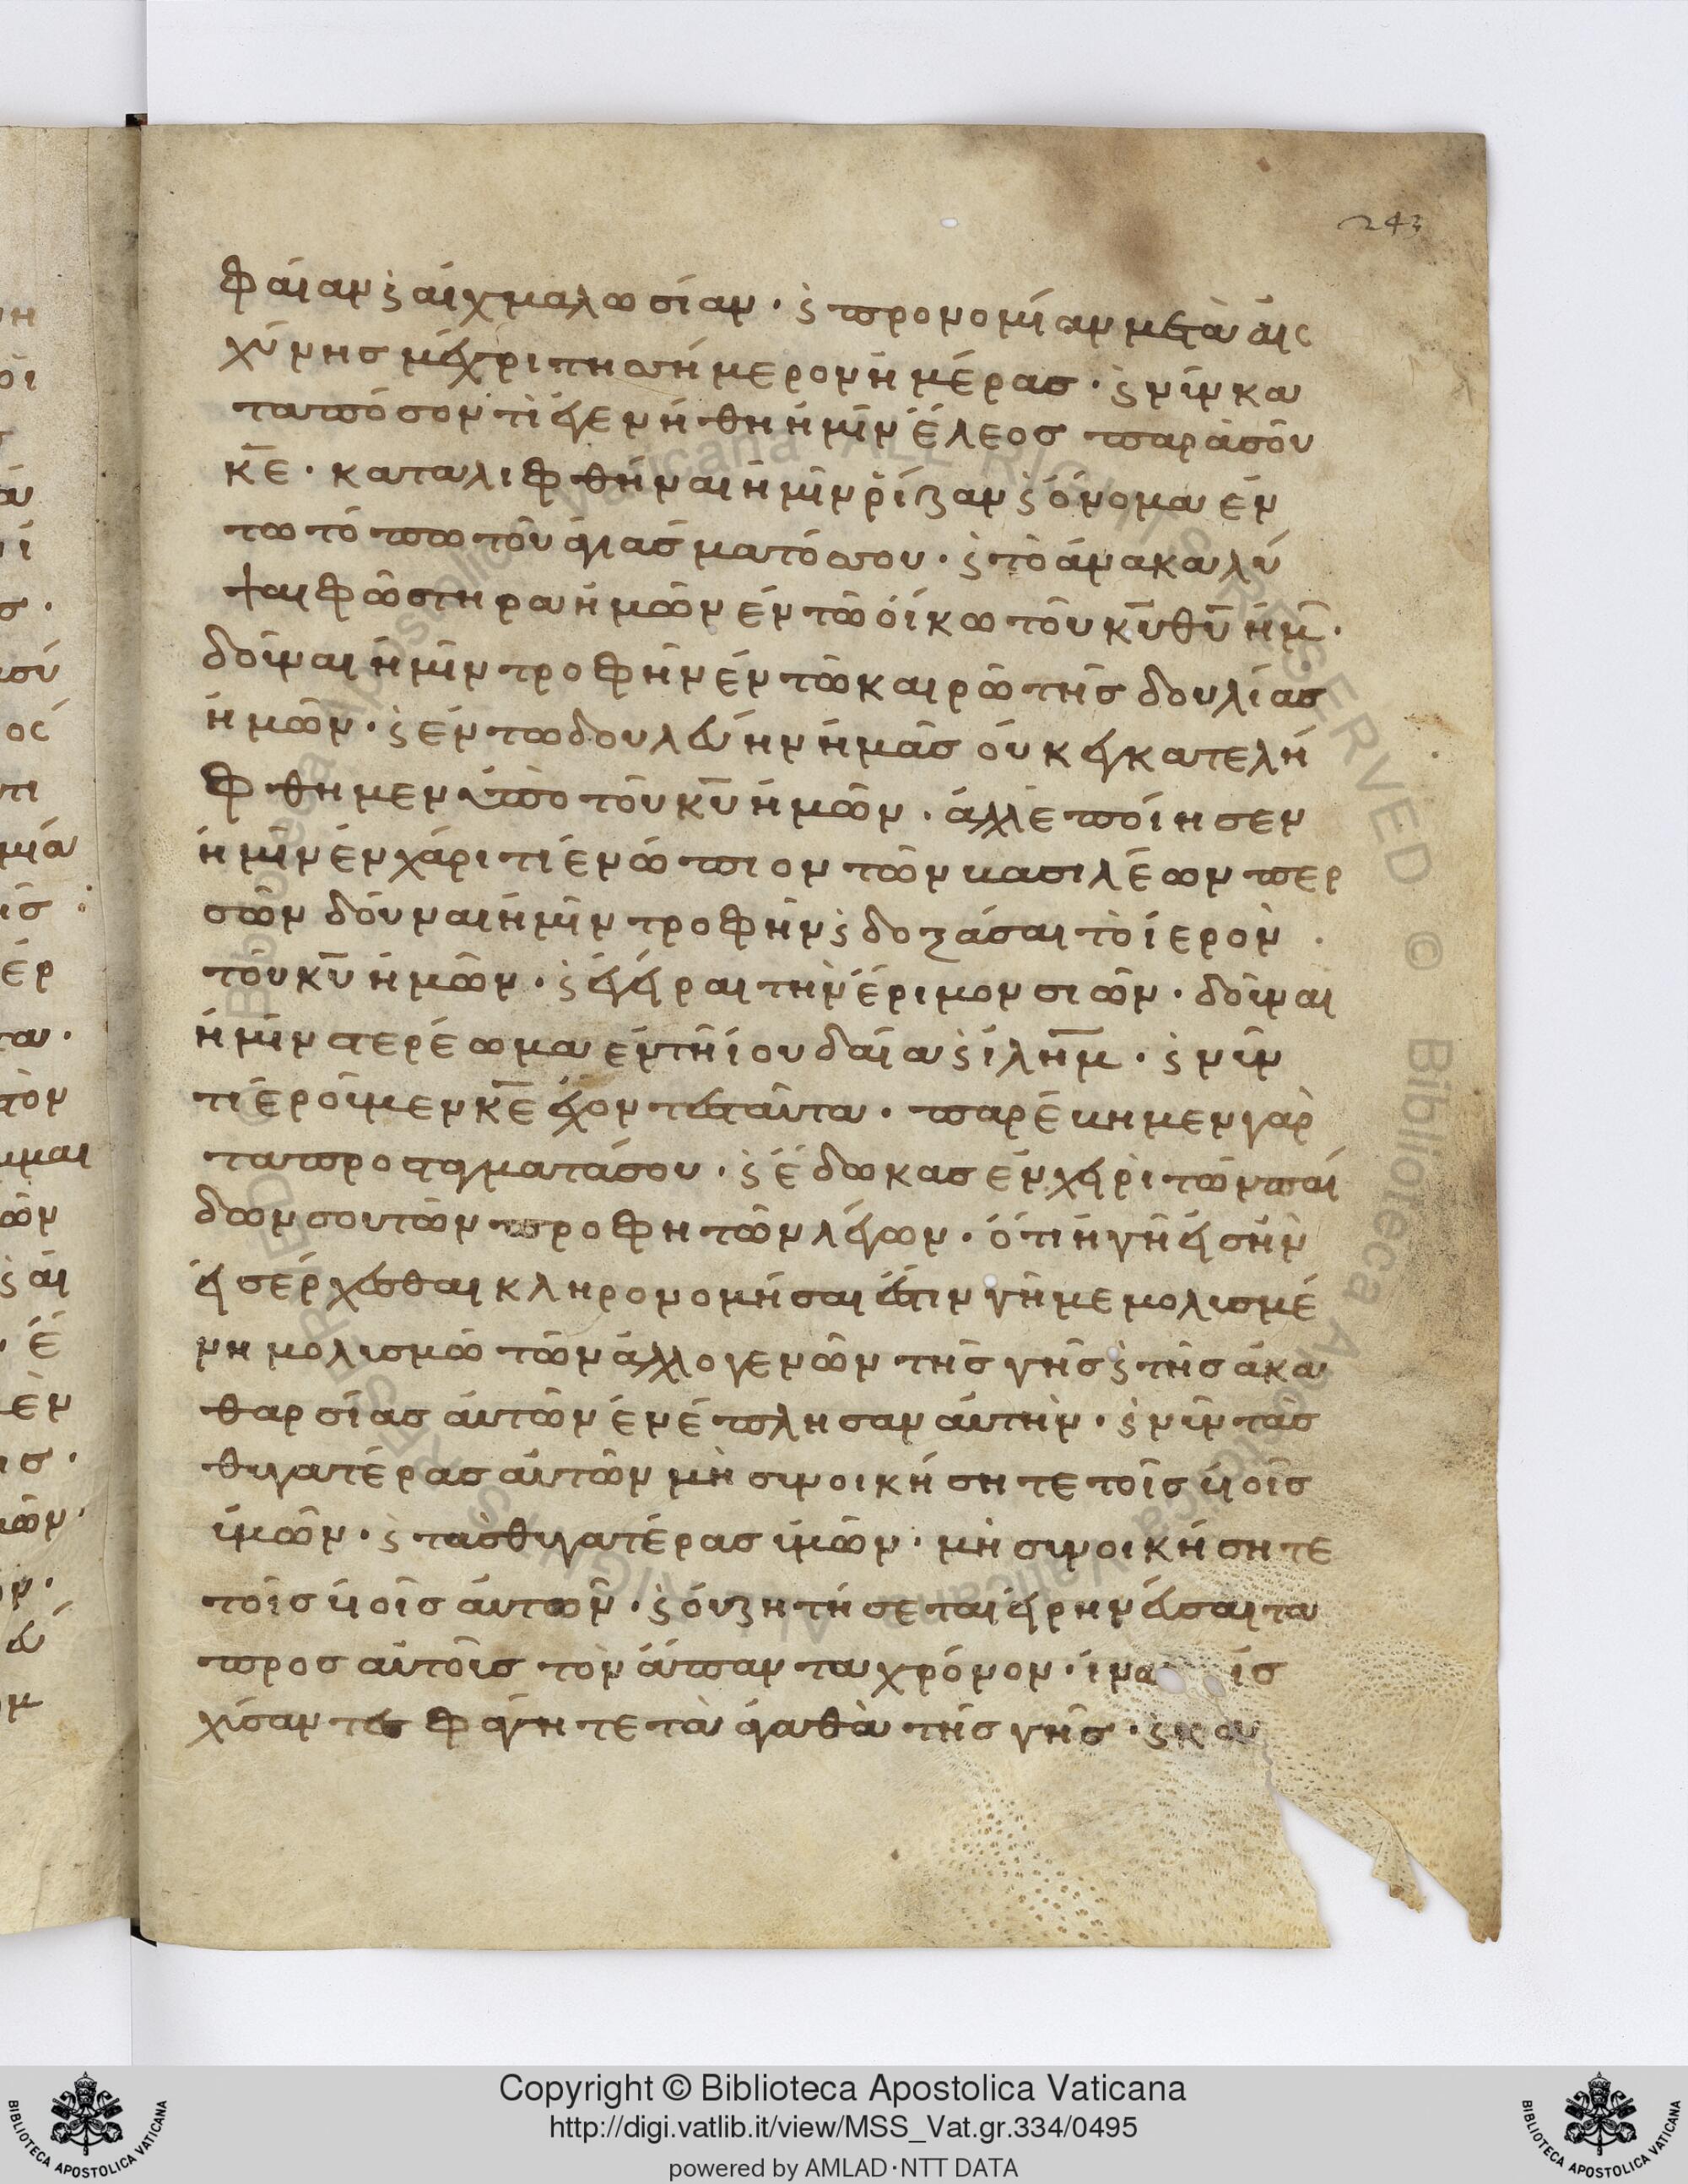 243
φαίαν ϛ αἰχμαλωσίαν · ϛ προνομίαν μετὰ αἰσ
χύνησ μέχρι τησ σήμερον ἡμέρασ · ϛ νῦν κα
ταπόσον τὶ ἐγενήθη ἡμῖν ἔλεοσ παρὰ σοῦ
κ̅ε̅ · καταλιφθῆναι ἡμῖν ρίζαν ϛ ὄνομα ἐν
τω τόπω τοῦ ἁγιάσματόσ σου · ϛ τὸ ἀνακαλύ
ψαι φῶστηρα ἡμῶν ἐν τῶ οἴκω τοῦ κ̅υ̅ θ̅υ̅ ἡμ̑ ·
δοῦναι ἡμῖν τροφὴν ἐν τῶ καιρῶ τῆσ δουλίασ
ἡμῶν · ϛ ἐν τω δουλεύην ἡμᾶσ οὐκ ἐγκατελή
φθημεν ὑπὸ τοῦ κ̅υ̅ ἡμῶν · ἀλλ' ἐποίησεν
ἡμῖν ἐν χάριτι ἐνώπιον τῶν βασιλέων περ
σῶν δόυναι ἡμῖν τροφὴν ϛ δοξάσαι τὸ ἱερὸν
τοῦ κ̅υ̅ ἡμῶν · ϛ ἐγεῖραι τὴν ἔριμον σιῶν · δοῦναι
ἡμῖν στερέωμα ἐν τῆ ἰουδαία ϛ ἰλη̅μ̅ · ϛ νῦν
τί ἐροῦμεν κ̅ε̅ ἔχοντεσ ταῦτα · παρέβημεν γαρ
τα προσταγματά σου · ϛ ἔδωκασ ἐν χειρὶ τῶν παί
δων σου τῶν προφητῶν λέγων · ὅτι ἡ γῆ εἰσ ἣν
εἰσέρχεσθαι κληρονομῆσαι ἐστιν γῆ μεμολισμέ
νη μολισμῶ τῶν ἀλλογενῶν τῆσ γῆσ ϛ τῆσ ἀκα
θαρσίασ αὐτῶν ἐνέπλησαν αὐτὴν · ϛ νῦν τὰσ
θυγατέρασ αὐτῶν μὴ συνοικήσητε τοῖσ υἱοῖσ
ὑμῶν · ϛ τὰσ θυγατέρασ ὑμῶν · μὴ συνοικήσητε
τοῖσ υἱοῖσ αὐτων · ϛ οὐ ζητήσεται εἰρηνεύσαι τα
προσ αὐτοῖσ τὸν ἅπαντα χρόνον · ἵνα ἰσ
χύσαντεσ φάγητε τὰ ἀγαθὰ τῆσ γῆσ · ϛ κα
Copyright © Biblioteca Apostolica Vaticana
http://digi.vatlib.it/view/MSS_Vat.gr.334/0495
powered by AMLAD·NTT DATA